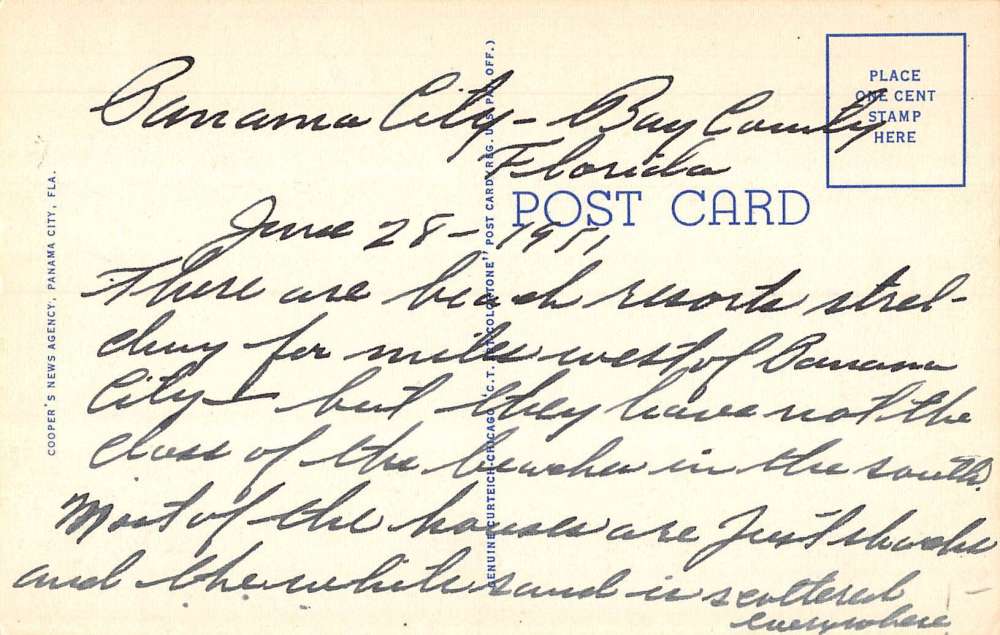 PLACE
ONE CENT
STAMP
HERE
Panama City - Bay County
Florida
POST CARD
June 28 - 1951,
There are beach resorts stret-
ching for miles west of Panama
City - but they have not the
class of the beaches in the south.
Most of the houses are Just shacks
and the white sand is scattered
everywhere
COOPER'S NEWS AGENCY, PANAMA CITY, FLA.
GENUINE CURTEICH-CHICAGO "C.T. ART-COLORTONE" POST CARD (REG. U.S. PAT. OFF.)